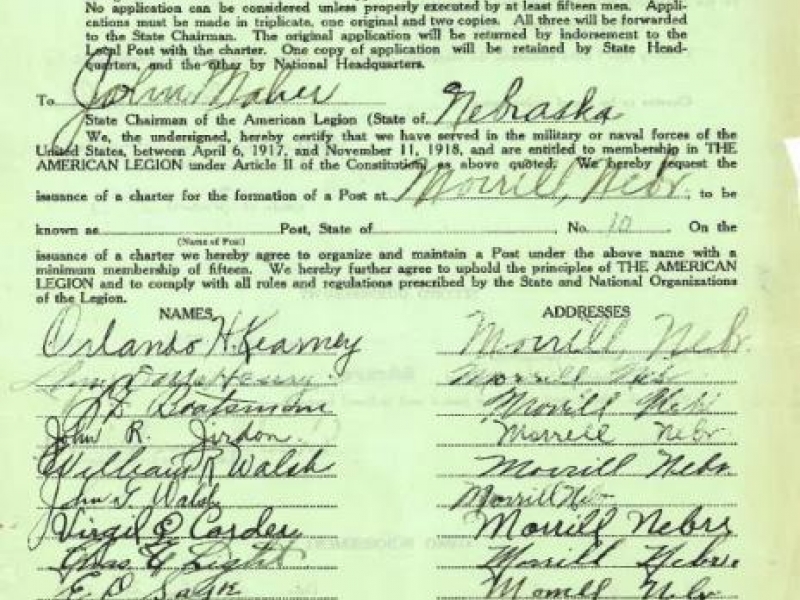 No application can be considered unless properly executed by at least fifteen men. Appli-
cations must be made in triplicate, one original and two copies. All three will be forwarded
to the State Chairman. The original application will be returned by indorsement to the
Local Post with the charter. One copy of application will be retained by State Head-
quarters, and the other by National Headquarters.
To John Maher
State Chairman of the American Legion (State of Nebraska
We, the undersigned, hereby certify that we have served in the military or naval forces of the
United States, between April 6, 1917, and November 11, 1918, and are entitled to membership in THE
AMERICAN LEGION under Article II of the Constitution as above quoted. We hereby request the
issuance of a charter for the formation of a Post at Morrill, Nebr., to be
known as Post, State of No. 10 On the
(Name of Post)
issuance of a charter we hereby agree to organize and maintain a Post under the above name with a
minimum membership of fifteen. We hereby further agree to uphold the principles of THE AMERICAN
LEGION and to comply with all rules and regulations prescribed by the State and National Organizations
of the Legion.
NAMES ADDRESSES
Orlando H. Kearney Morrill, Nebr.
McHenry Morrill Nebr
Boatsman Morrill Nebr
John R. Jirdon. Morrell Nebr
William R Walsh Morrill Nebr.
John T. Walsh Morrill Nebr
Virgil E Corder Morrill Nebra
Chas Light Morrill Nebr.
E Morrell Nebr